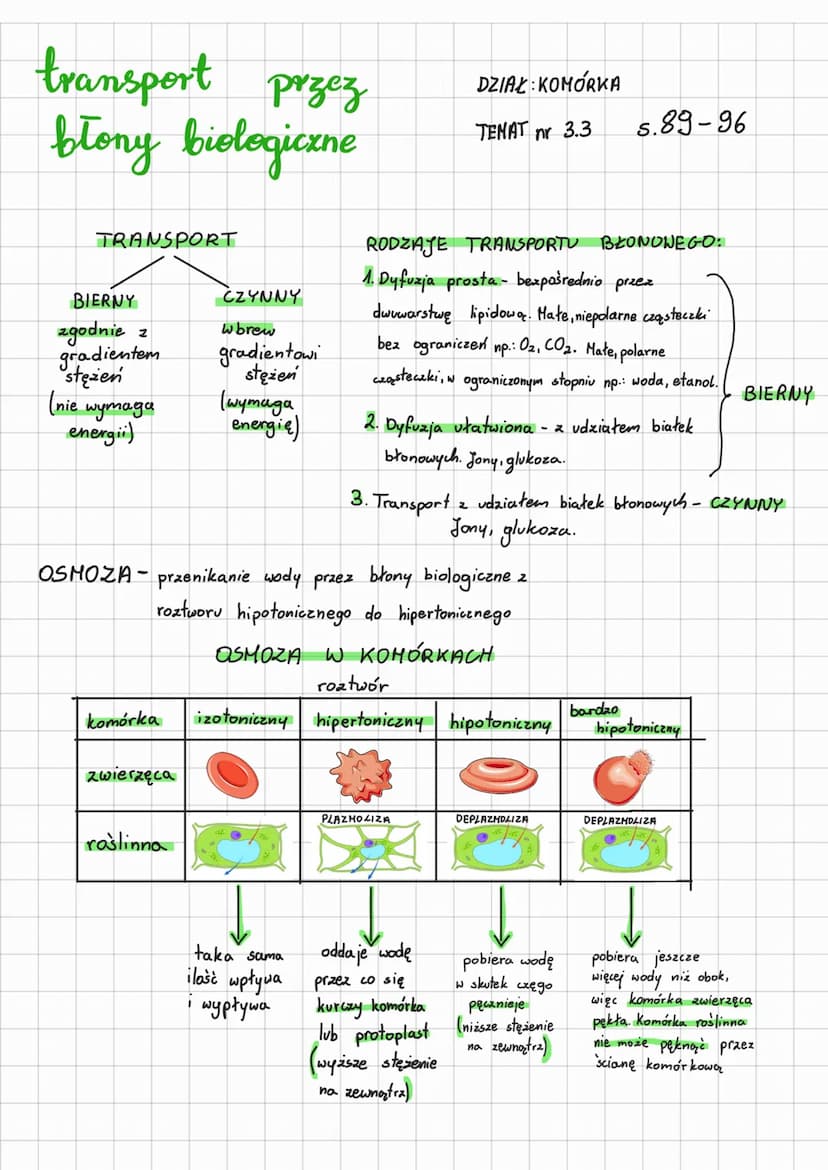 transport przez
błony biologiczne
DZIAŁ: KOMÓRKA
TEMAT nr 3.3 s.89-96
TRANSPORT
BIERNY
zgodnie z
gradientem
stężeń
(nie wymaga
energii)
CZYNNY
wbrew
gradientowi
stężeń
(wymaga
energię)
RODZAJE TRANSPORTU BŁONOWEGO:
1. Dyfuzja prosta - bezpośrednio przez
dwuwarstwę lipidową. Małe, niepolarne cząsteczki
bez ograniczeń np.: O2, CO2. Małe, polarne
cząsteczki, w ograniczonym stopniu np.: woda, etanol.
2. Dyfuzja ułatwiona - z udziałem białek
błonowych. Jony, glukoza.
BIERNY
3. Transport z udziałem białek błonowych - CZYNNY
Jony, glukoza.
OSMOZA - przenikanie wody przez błony biologiczne z
roztworu hipotonicznego do hipertonicznego
OSMOZA W KOMÓRKACH
roztwór
komórka izotoniczny hipertoniczny hipotoniczny bardzo
hipotoniczny
zwierzęca
roślinna
PLAZMOLIZA DEPLAZMOLIZA DEPLAZMOLIZA
taka sama
ilość wpływa
i wypływa
oddaje wodę
przez co się
kurczy komórka
lub protoplast
(wyższe stężenie
na zewnątrz)
pobiera wodę
w skutek czego
pęcznieje
(niższe stężenie
na zewnątrz)
pobiera jeszcze
więcej wody niż obok,
więc komórka zwierzęca
pękła. Komórka roślinna
nie może pęknąć przez
ścianę komórkową